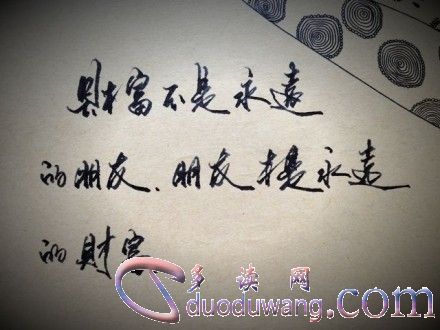 財富不是永遠
的朋友、朋友才是永遠
的財富
多读网
duoduwang.com